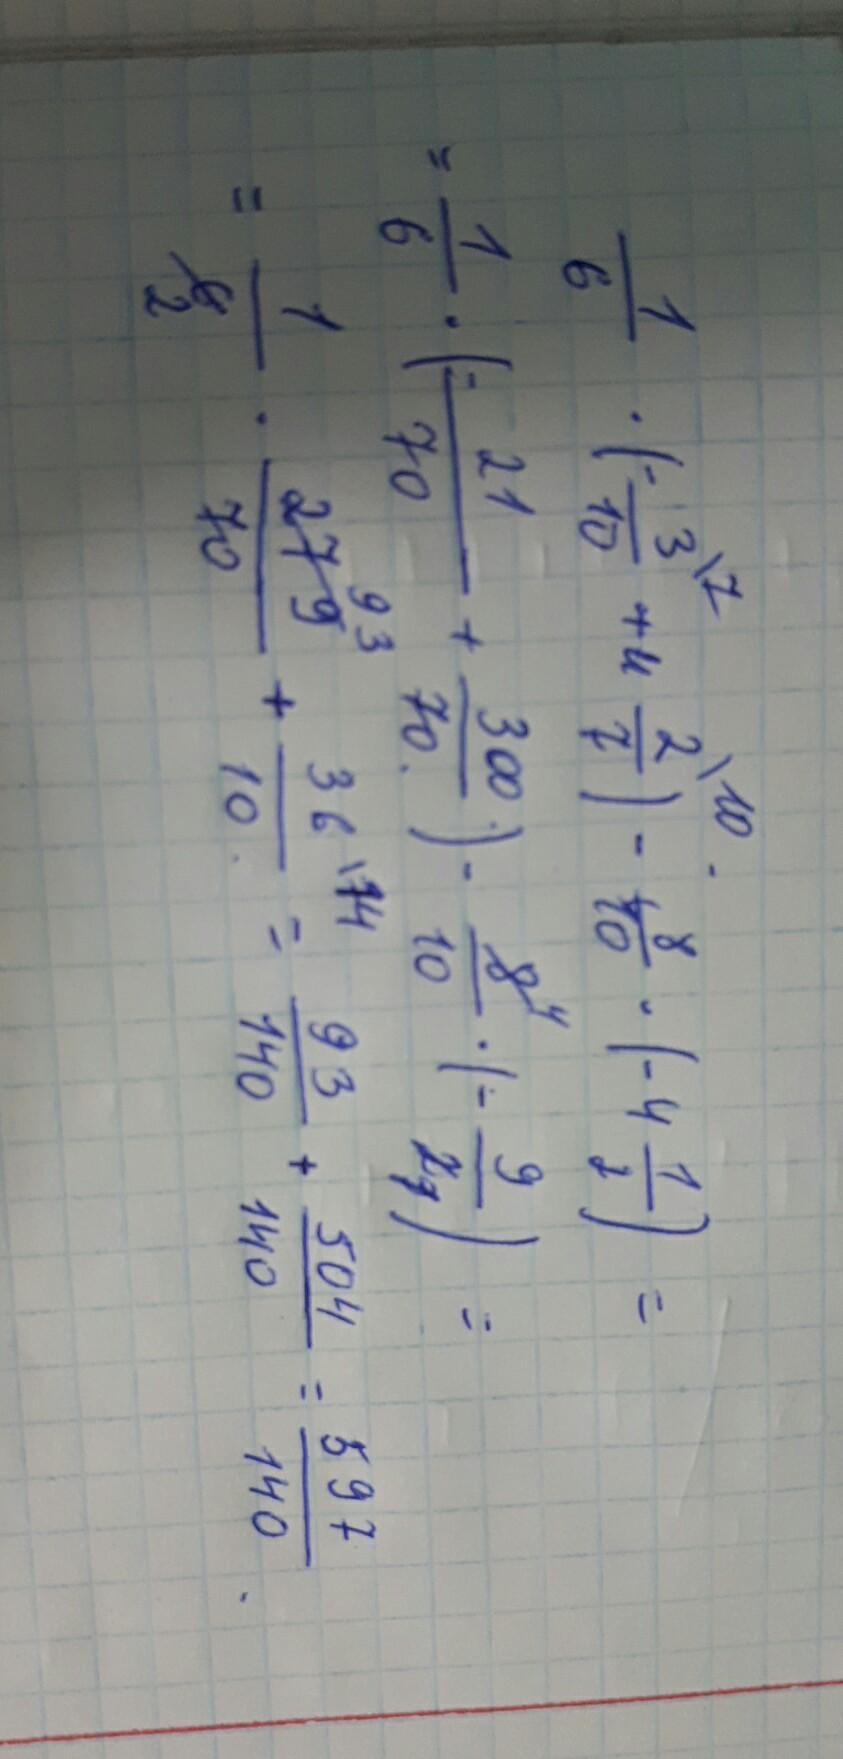 1/6 · (-3/10 \7 + 4 2/7 \10) - 8/10 · (-4 1/2) =
= 1/6 · (-21/70 + 300/70) - 8 4/10 · (-9/2 1) =
= 1/6 2 · 279 93/70 + 36/10 \14 = 93/140 + 504/140 = 597/140.